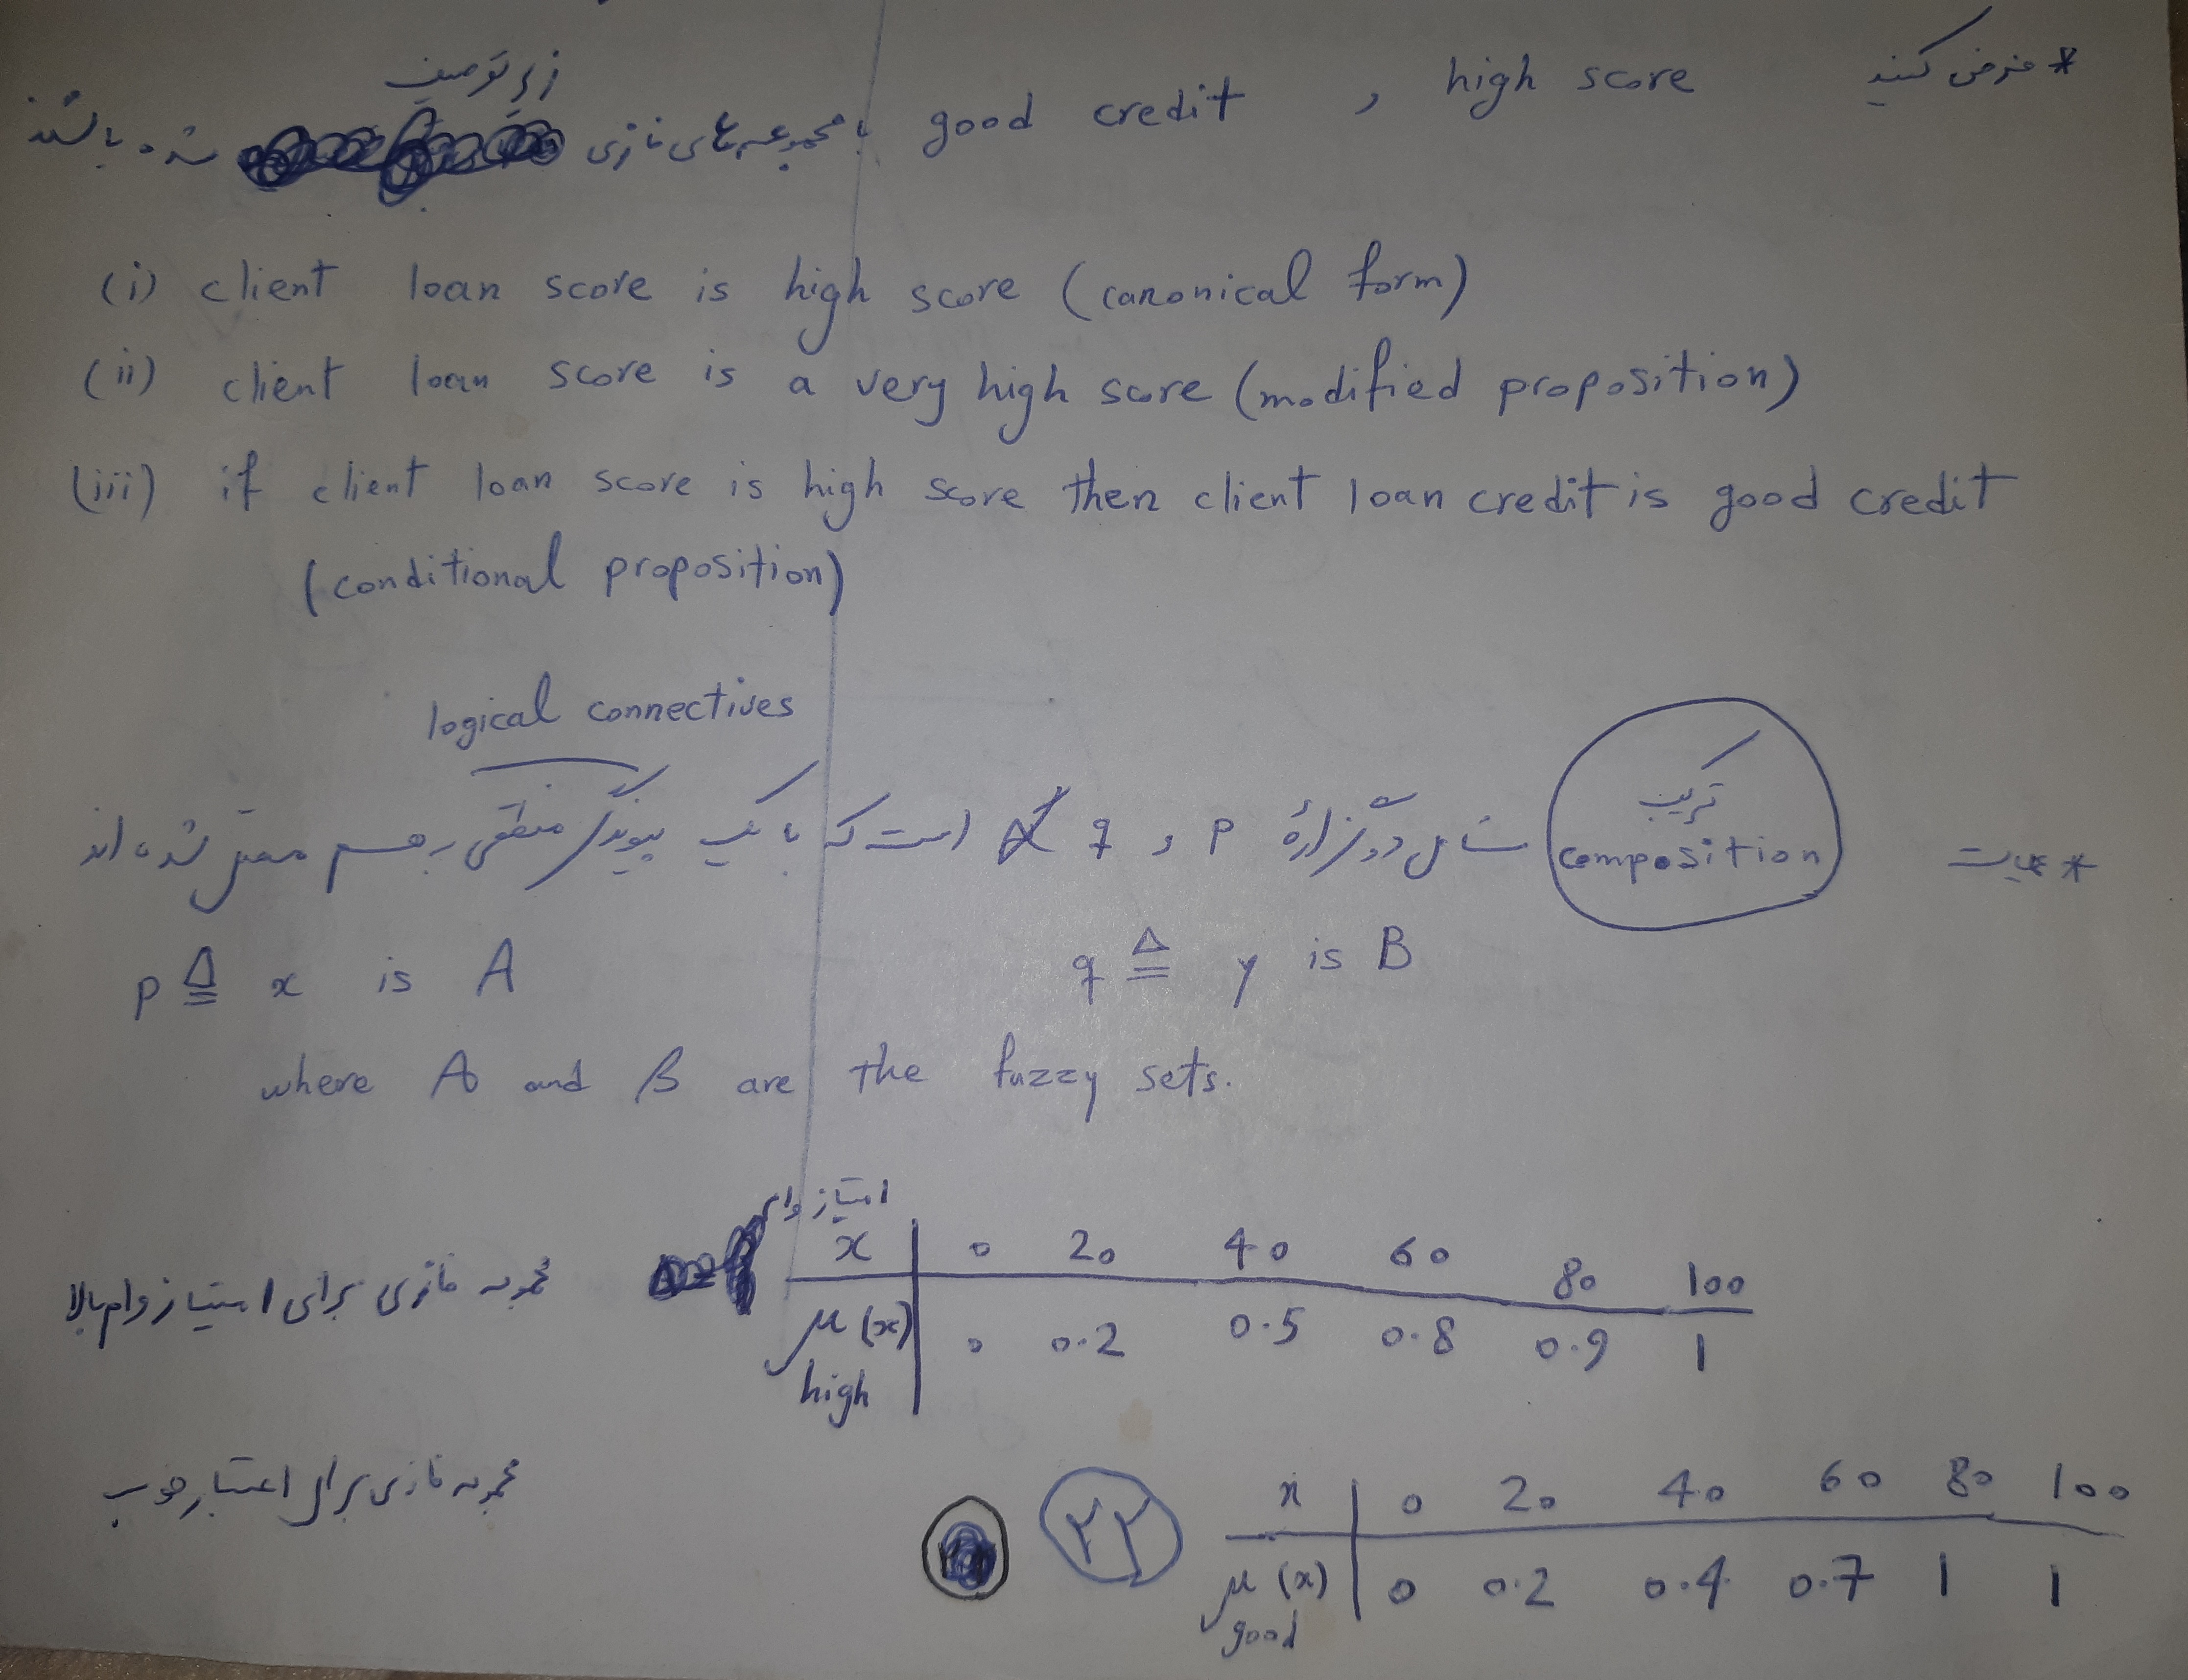 * فرض کنید high score و good credit با مجموعه‌های فازی زیر توصیف شده باشند
(i) client loan score is high score (canonical form)
(ii) client loan score is a very high score (modified proposition)
(iii) if client loan score is high score then client loan credit is good credit
(conditional proposition)
logical connectives
* ترکیب composition شامل دو گزارهٔ p و q است که با یک پیوند منطقی بهم شده‌اند
p ≜ x is A q ≜ y is B
where A and B are the fuzzy sets.
امتیاز وام
x 0 20 40 60 80 100
مجموعه فازی برای امتیاز وام بالا
μ(x) 0 0.2 0.5 0.8 0.9 1
high
مجموعه فازی برای اعتبار خوب
x 0 20 40 60 80 100
۲۲
μ(x) 0 0.2 0.4 0.7 1 1
good